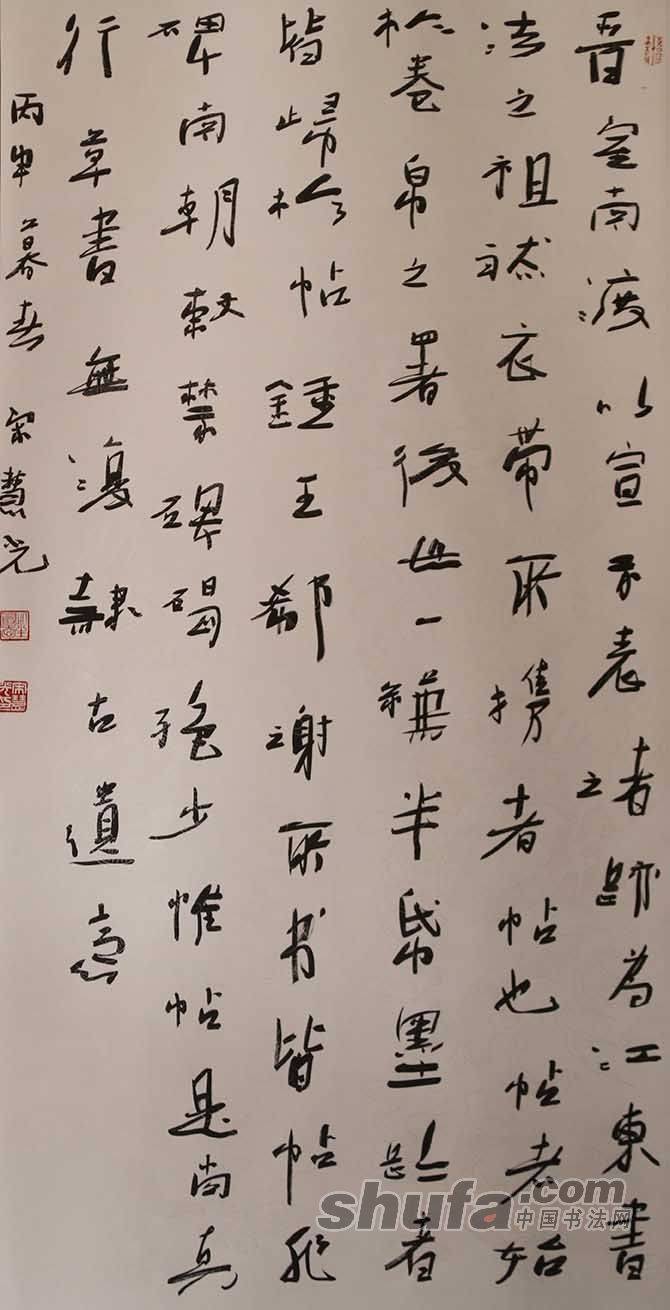 晋室南渡以宣示表諸跡為江東書
法之祖然衣帶所攜者帖也帖者始
於卷帛之署後世一縑半帋墨跡者
皆歸於帖鍾王郗謝所书皆帖非
碑南朝敕禁碑碣絕少惟帖是尚真
行草書無復隸古遺意
丙申暮春 宋慧光
shufa.com
中国书法网